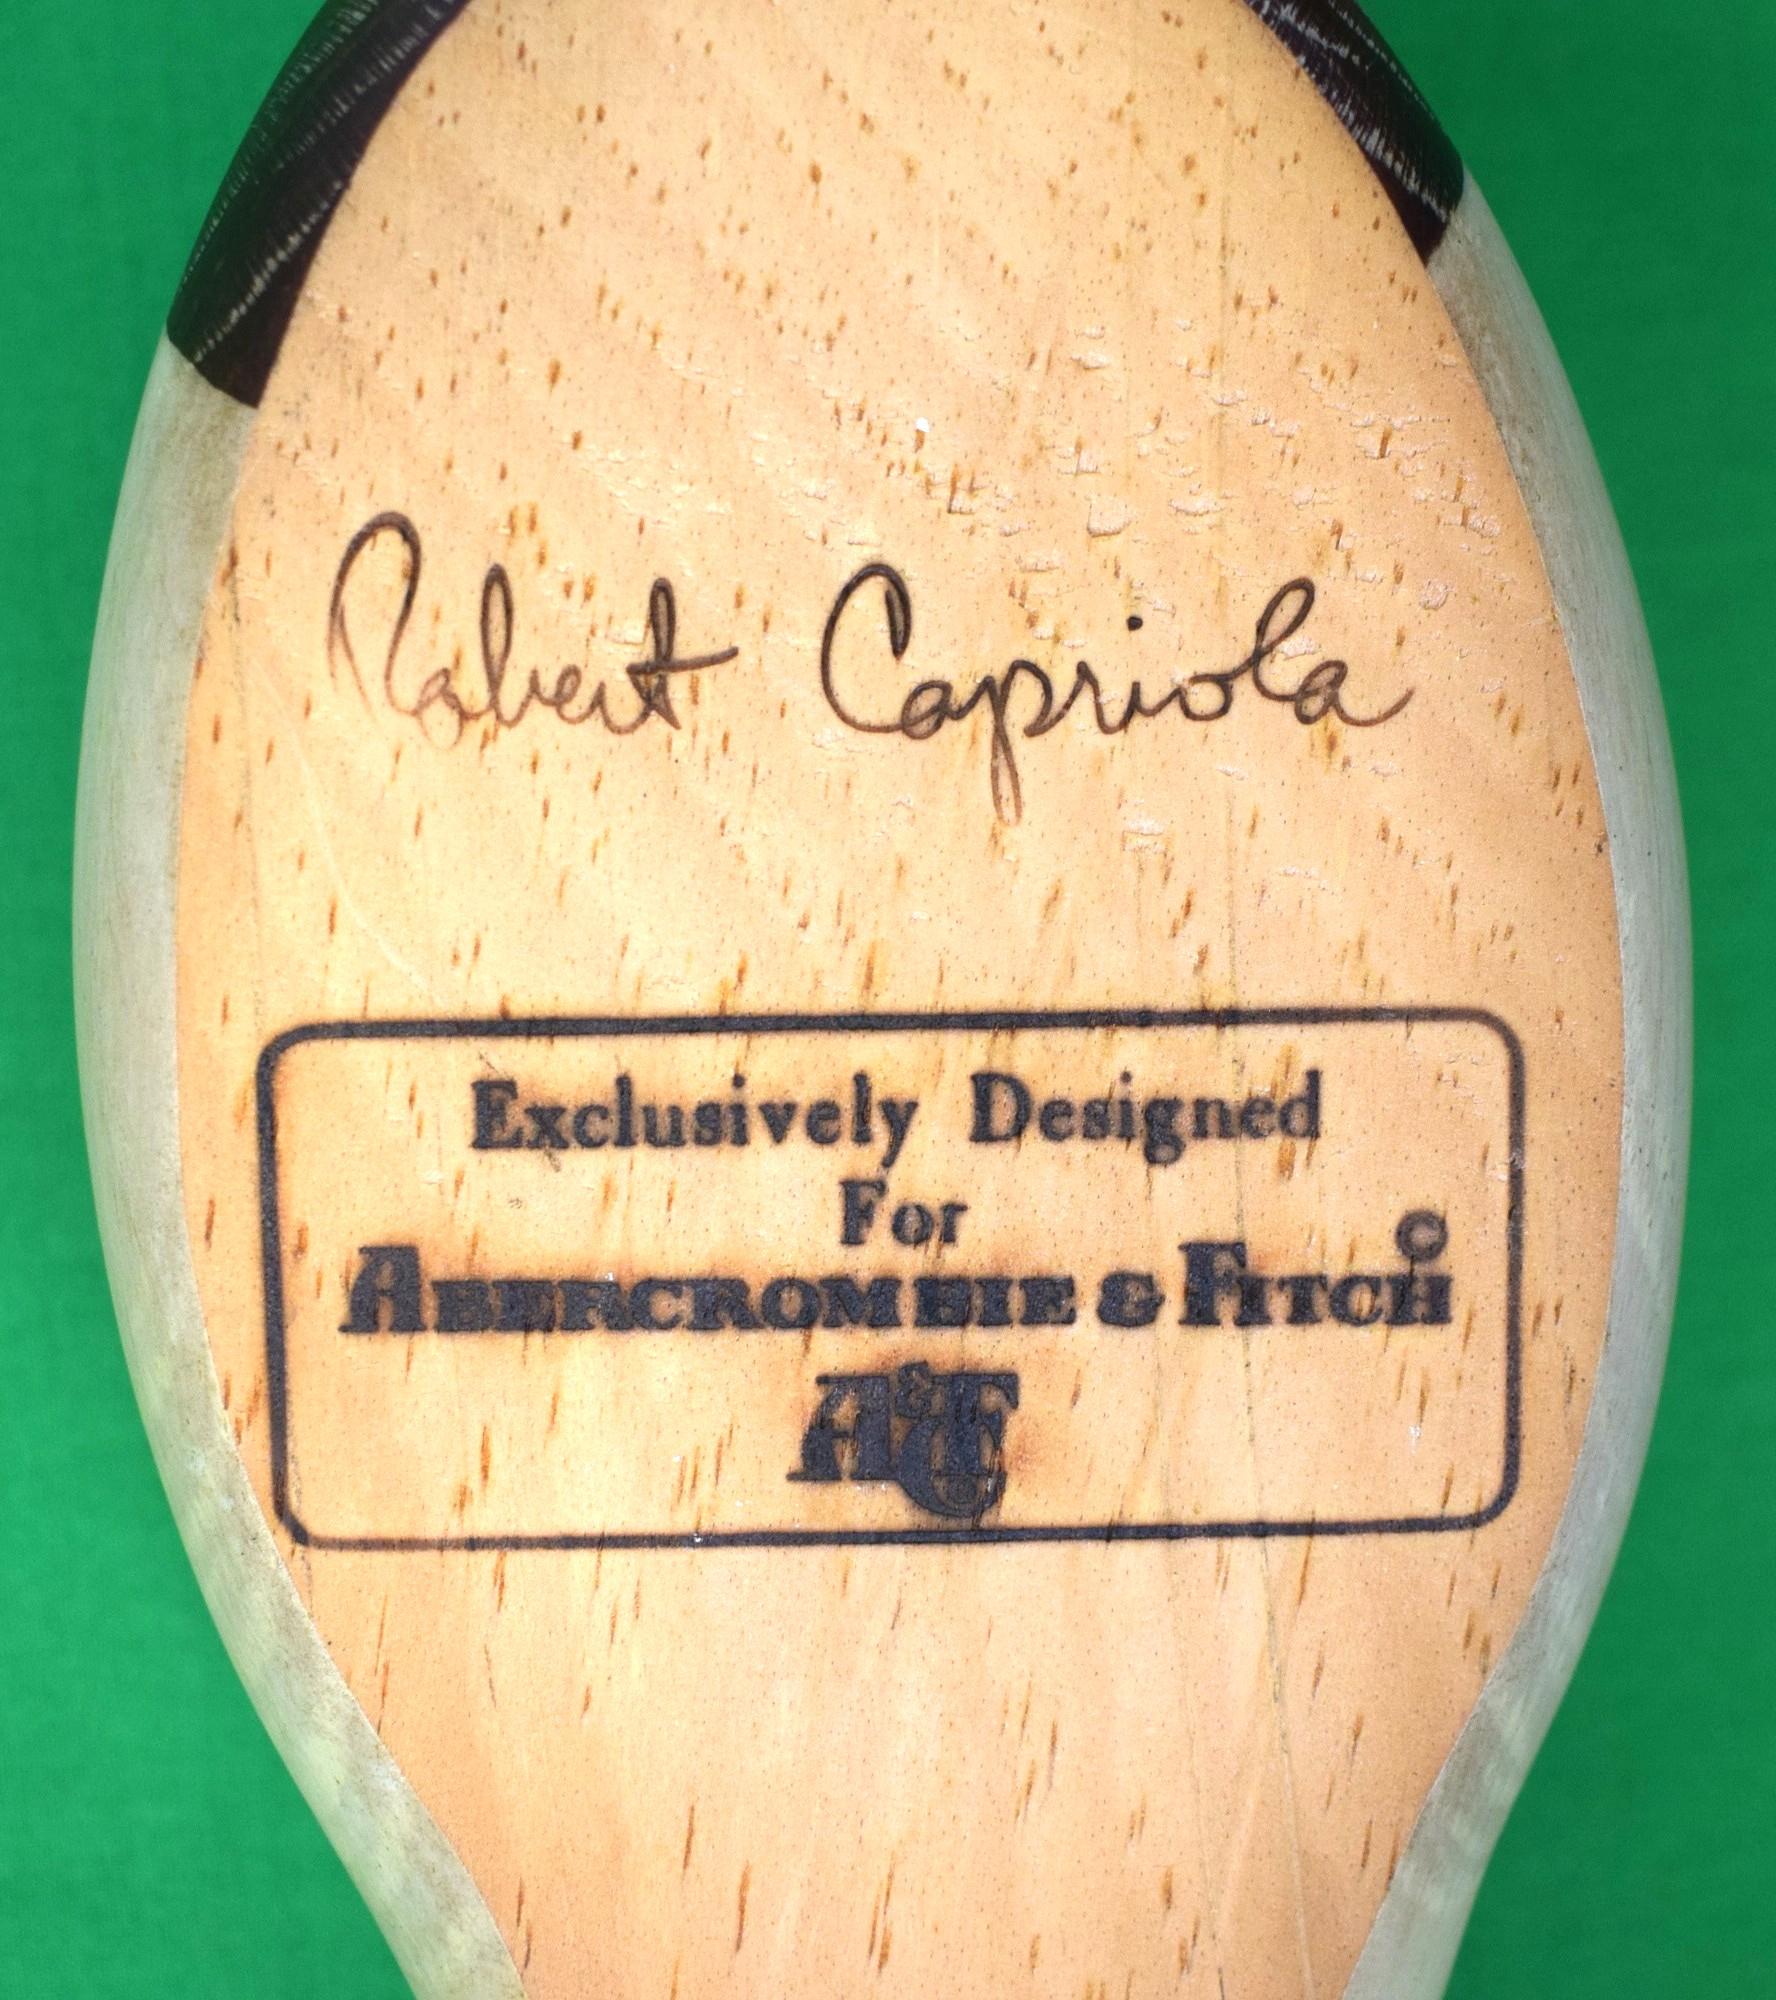 Robert Capriola
Exclusively Designed
For
ABERCROMBIE & FITCH ©
A&F Co